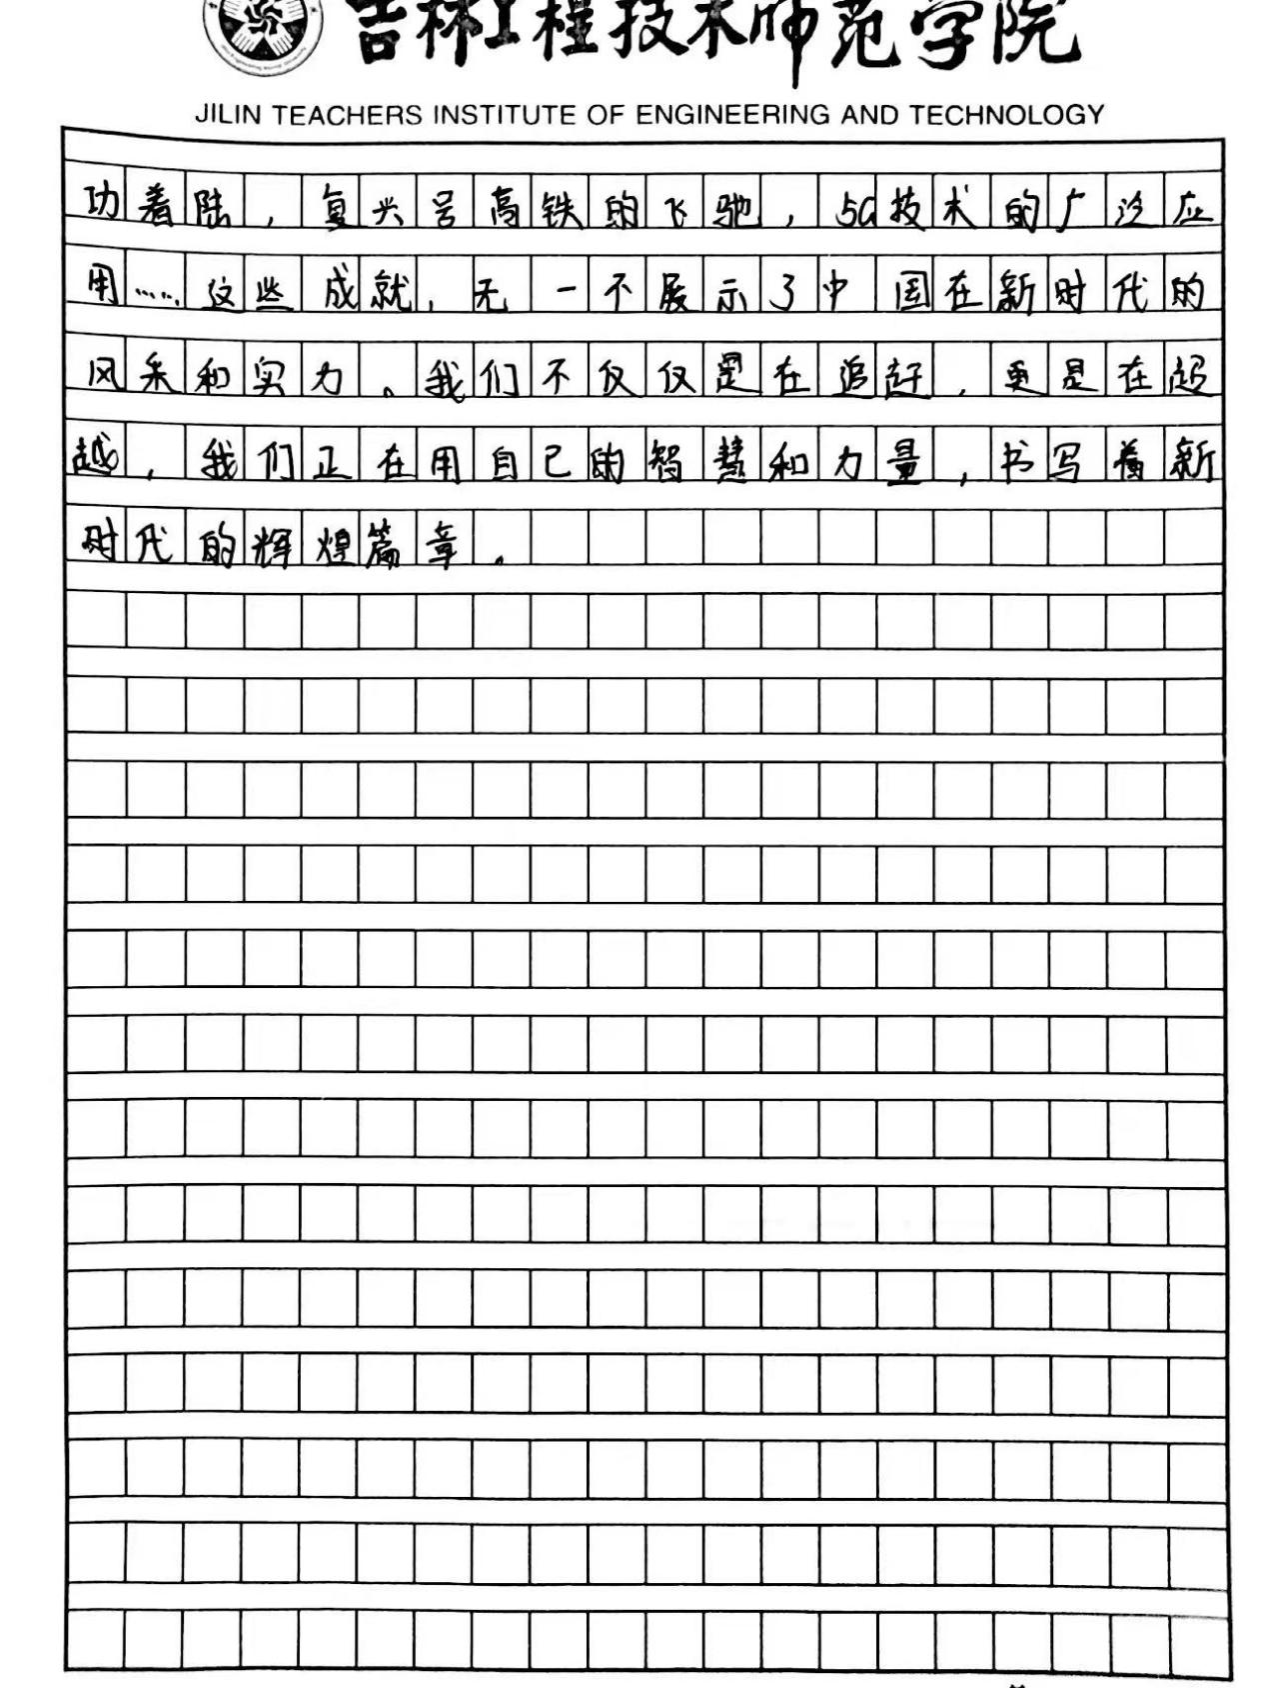 吉林工程技术师范学院
JILIN TEACHERS INSTITUTE OF ENGINEERING AND TECHNOLOGY
功着陆，复兴号高铁的飞驰，5G技术的广泛应
用……这些成就，无一不展示了中国在新时代的
风采和实力。我们不仅仅是在追赶，更是在超
越，我们正在用自己的智慧和力量，书写着新
时代的辉煌篇章。